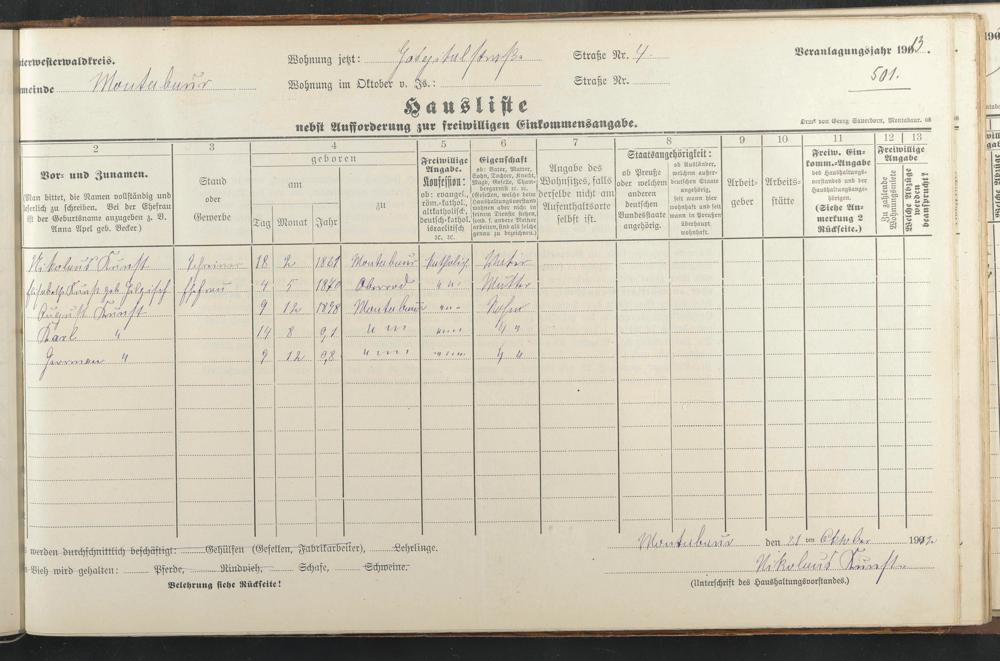 nterwesterwaldkreis.
Wohnung jetzt: Hospitalstraße Straße Nr. 4
Veranlagungsjahr 1913.
meinde Montabaur
Wohnung im Oktober v. Js.: Straße Nr.
501.
Hausliste
nebst Aufforderung zur freiwilligen Einkommensangabe.
Druck von Georg Sauerborn, Montabaur.
2 3 4 5 6 7 8 9 10 11 12 13
Vor- und Zunamen.
(Man bittet, die Namen vollständig und
leserlich zu schreiben. Bei der Ehefrau
ist der Geburtsname anzugeben z. B.
Anna Apel geb. Becker.)
Stand
oder
Gewerbe
geboren
am
zu
Tag Monat Jahr
Freiwillige
Angabe.
Konfession:
ob: evangel.,
röm.-kathol.,
altkatholisch,
deutsch-kathol.
israelitisch
ec. ec.
Eigenschaft
ob: Vater, Mutter,
Sohn, Tochter, Knecht,
Angabe des
Wohnsitzes, falls
derselbe nicht am
Aufenthaltsorte
selbst ist.
Staatsangehörigkeit:
ob Preuße
oder welchem
anderen
deutschen
Bundesstaate
angehörig.
ob Ausländer,
welchem außer-
deutschen Staate
angehörig,
seit wann hier
wohnhaft und seit
wann in Preußen
überhaupt
wohnhaft.
Arbeit-
geber
Arbeits-
stätte
Freiw. Ein-
komm.-Angabe
des Haushaltungs-
vorstandes und der
Haushaltungsange-
hörigen.
(Siehe An-
merkung 2
Rückseite.)
Freiwillige
Angabe
Zu zahlende
Wohnungsmiete
Welche Abzüge
werden
beansprucht?
Nikolaus Kunst Schreiner 18 2 1861 Montabaur katholisch Vater
Elisabeth Kunst geb. Ehefrau 4 5 1870 " " Mutter
August Kunst 9 12 1898 Montabaur " " Sohn
Karl " 14 8 91 " " " "
Herrman " 9 12 98 " " " "
werden durchschnittlich beschäftigt: Gehülfen (Gesellen, Fabrikarbeiter), Lehrlinge.
Vieh wird gehalten: Pferde, Rindvieh, Schafe, Schweine.
Belehrung siehe Rückseite!
Montabaur den 21 ten Oktober 1912
Nikolaus Kunst
(Unterschrift des Haushaltungsvorstandes.)